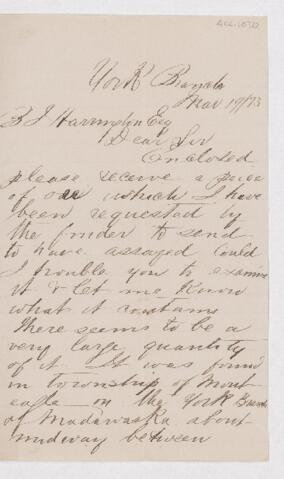 York Branch
Mar 19/73
B J Harrington Esq
Dear Sir
Enclosed
please receive a piece
of ore which I have
been requested by
the finder to send
to have assayed could
I trouble you to examine
it & let me know
what it contains
There seems to be a
very large quantity
of it. It was found
in township of Mont
eagle on the York Branch
of Madawaska about
midway between